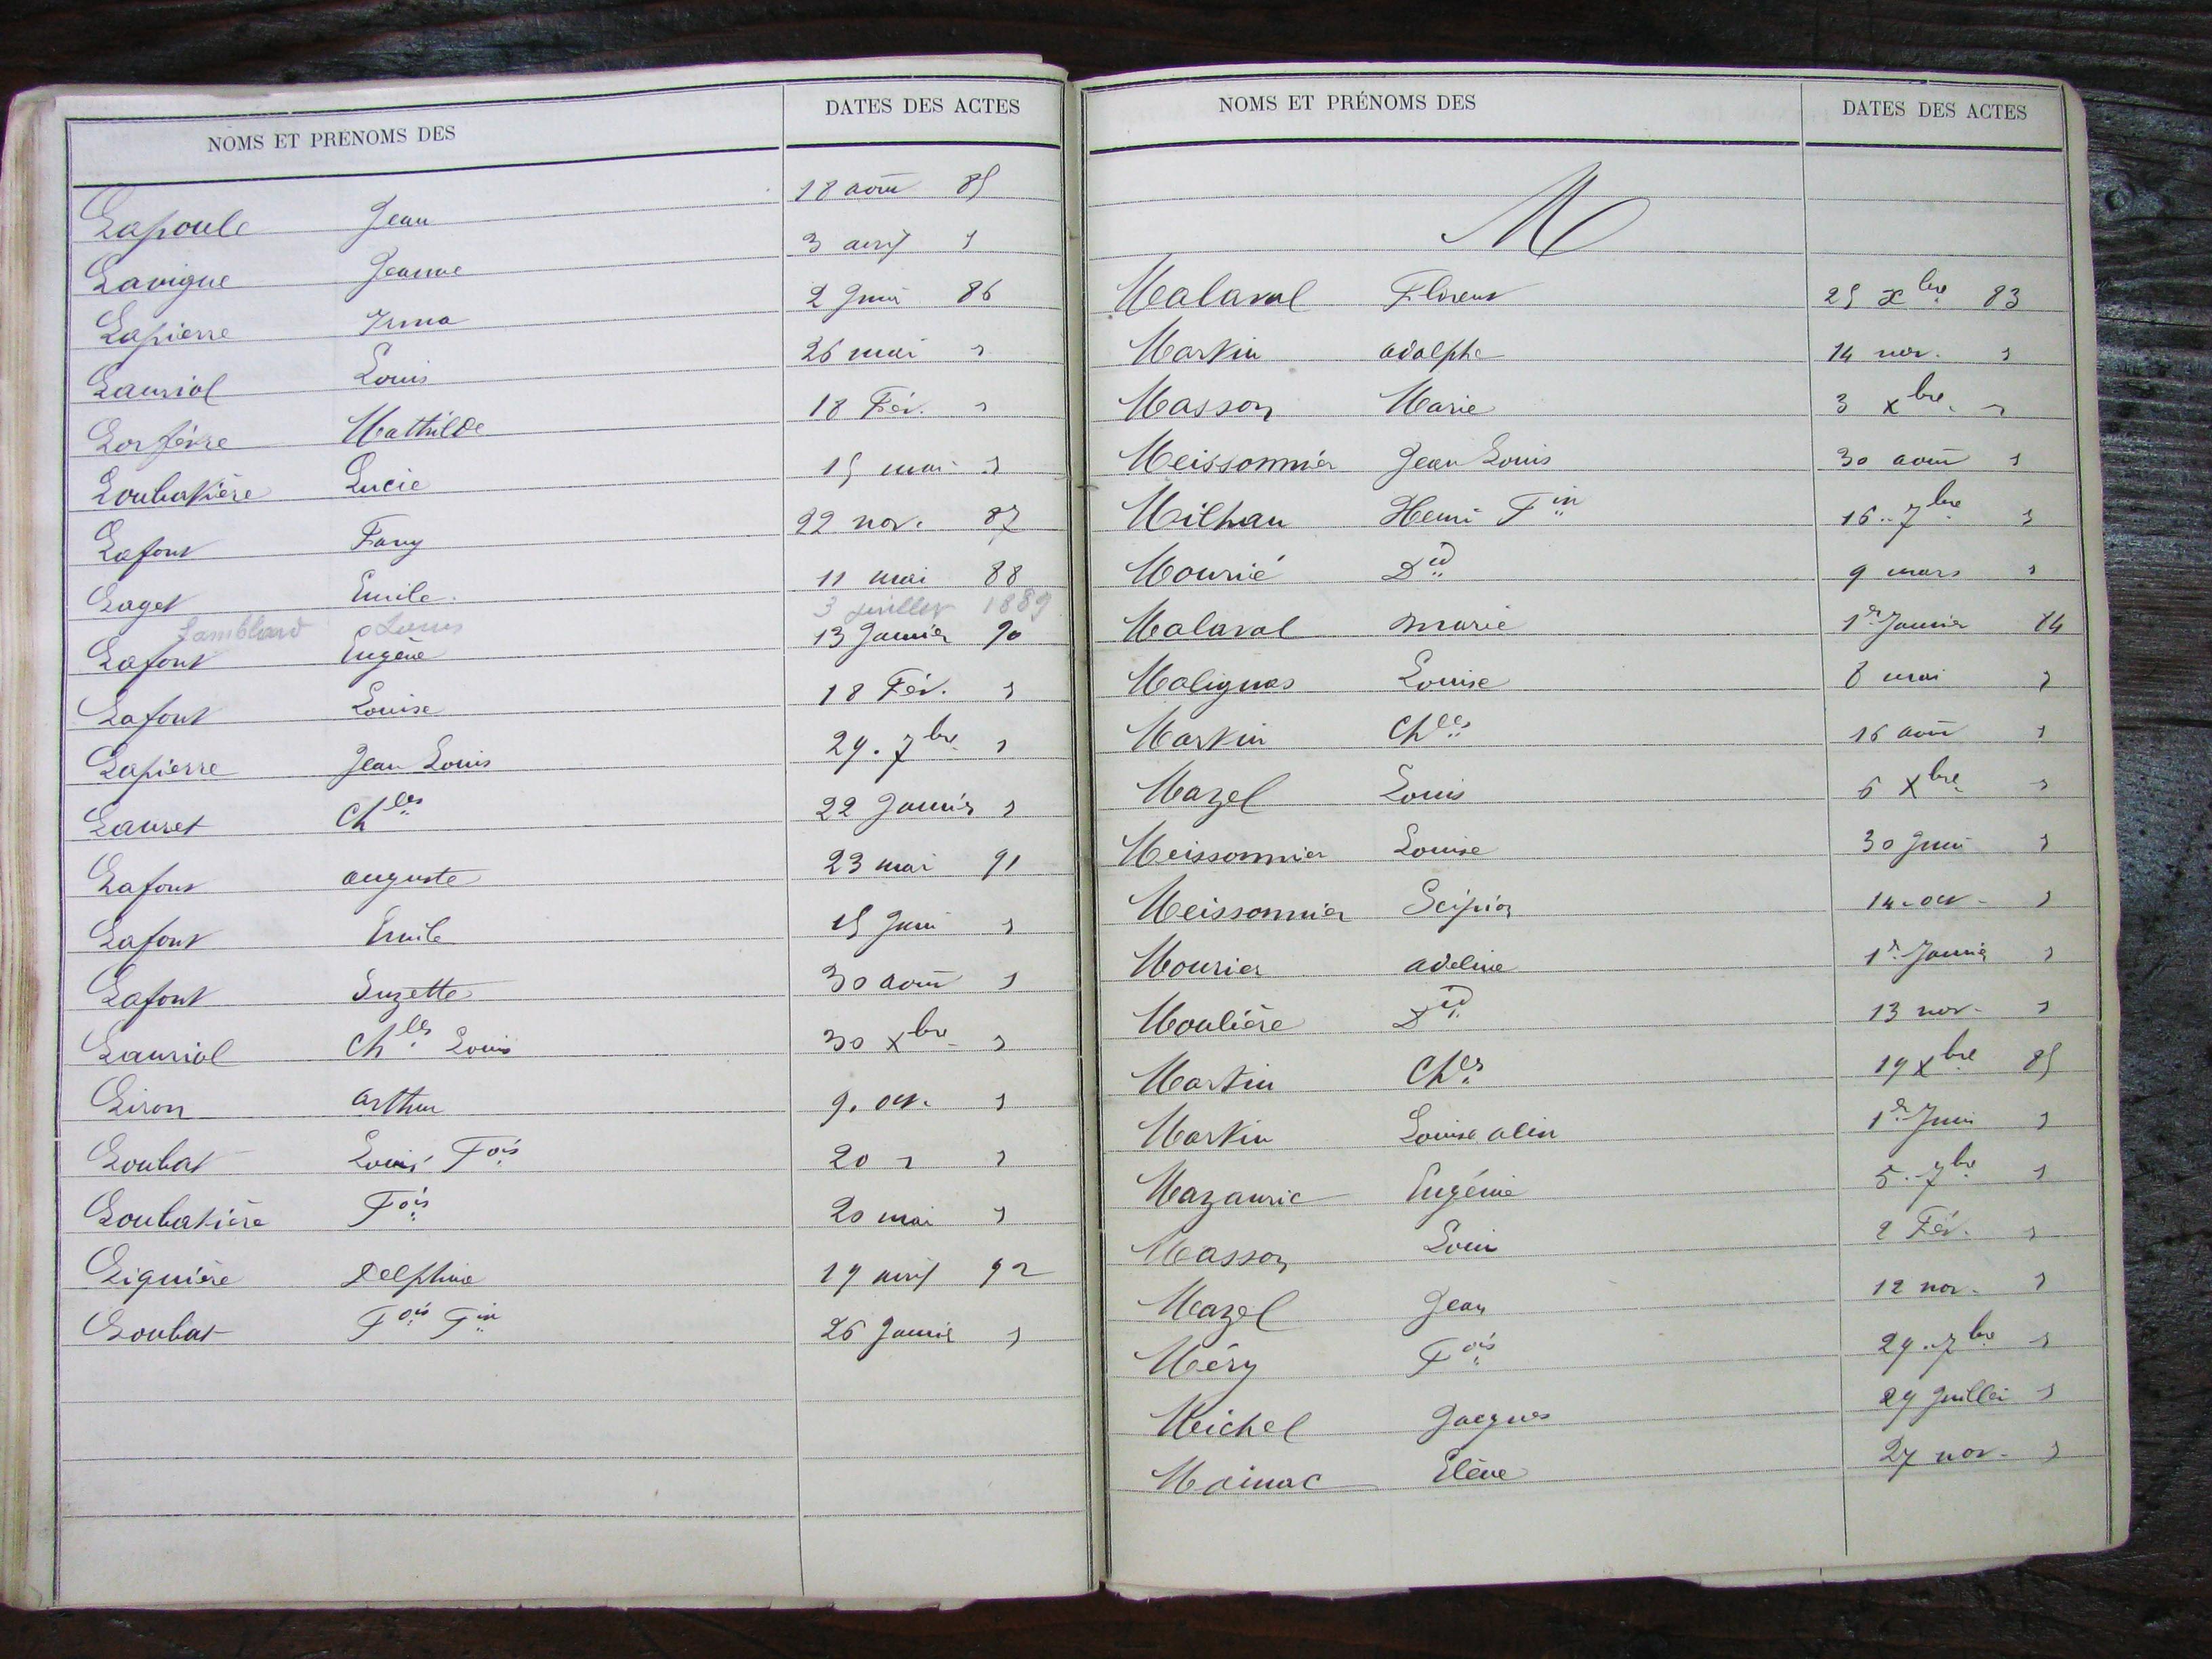 NOMS ET PRÉNOMS DES DATES DES ACTES
Lapoule Jean 18 août 85
Lavigne Jeanne 3 avril "
Lapierre Irma 2 Juin 86
Lauriol Louis 26 mai "
Lorfèvre Mathilde 18 Fév. "
Loubatière Lucie 15 mai "
Lafont Fany 22 nov. 87
Laget Emile 11 mai 88
Lamblard Louis 3 juillet 1889
Lafont Eugène 13 Janvier 90
Lafont Louise 18 Fév. "
Lapierre Jean Louis 29. 7bre "
Lauret Chles 22 Janvier "
Lafont auguste 23 mai 91
Lafont Emile 15 Juin "
Lafont Suzette 30 août "
Lauriol Chles Louis 30 Xbre "
Liron arthur 9. oct. "
Loubat Louis Fois 20 " "
Loubatière Fois 20 mai "
Liquière Delphine 19 avril 92
Loubat Fois Fin 26 Janvier "
NOMS ET PRÉNOMS DES DATES DES ACTES
M
Malaval Florent 25 Xbre 83
Martin adolphe 14 nov. "
Masson Marie 3 Xbre "
Meissonnier Jean Louis 30 août "
Milhau Henri Fin 16. 7bre "
Mourié Did 9 mars "
Malaval marie 1er Janvier 84
Malignas Louise 8 mai "
Martin Chles 16 août "
Mazel Louis 6 Xbre "
Meissonnier Louise 30 Juin "
Meissonnier Scipion 14. oct. "
Mourier adeline 1r Janvier "
Moulière Did 13 nov. "
Martin Chles 19 Xbre 85
Martin Louise alin 1er Juin "
Mazauric Eugénie 5. 7bre "
Masson Louis 2 Fév. "
Mazel Jean 12 nov. "
Méry Fois 29. 7bre "
Meichel Jacques 29 Juillet "
Mainac Elène 27 nov. "